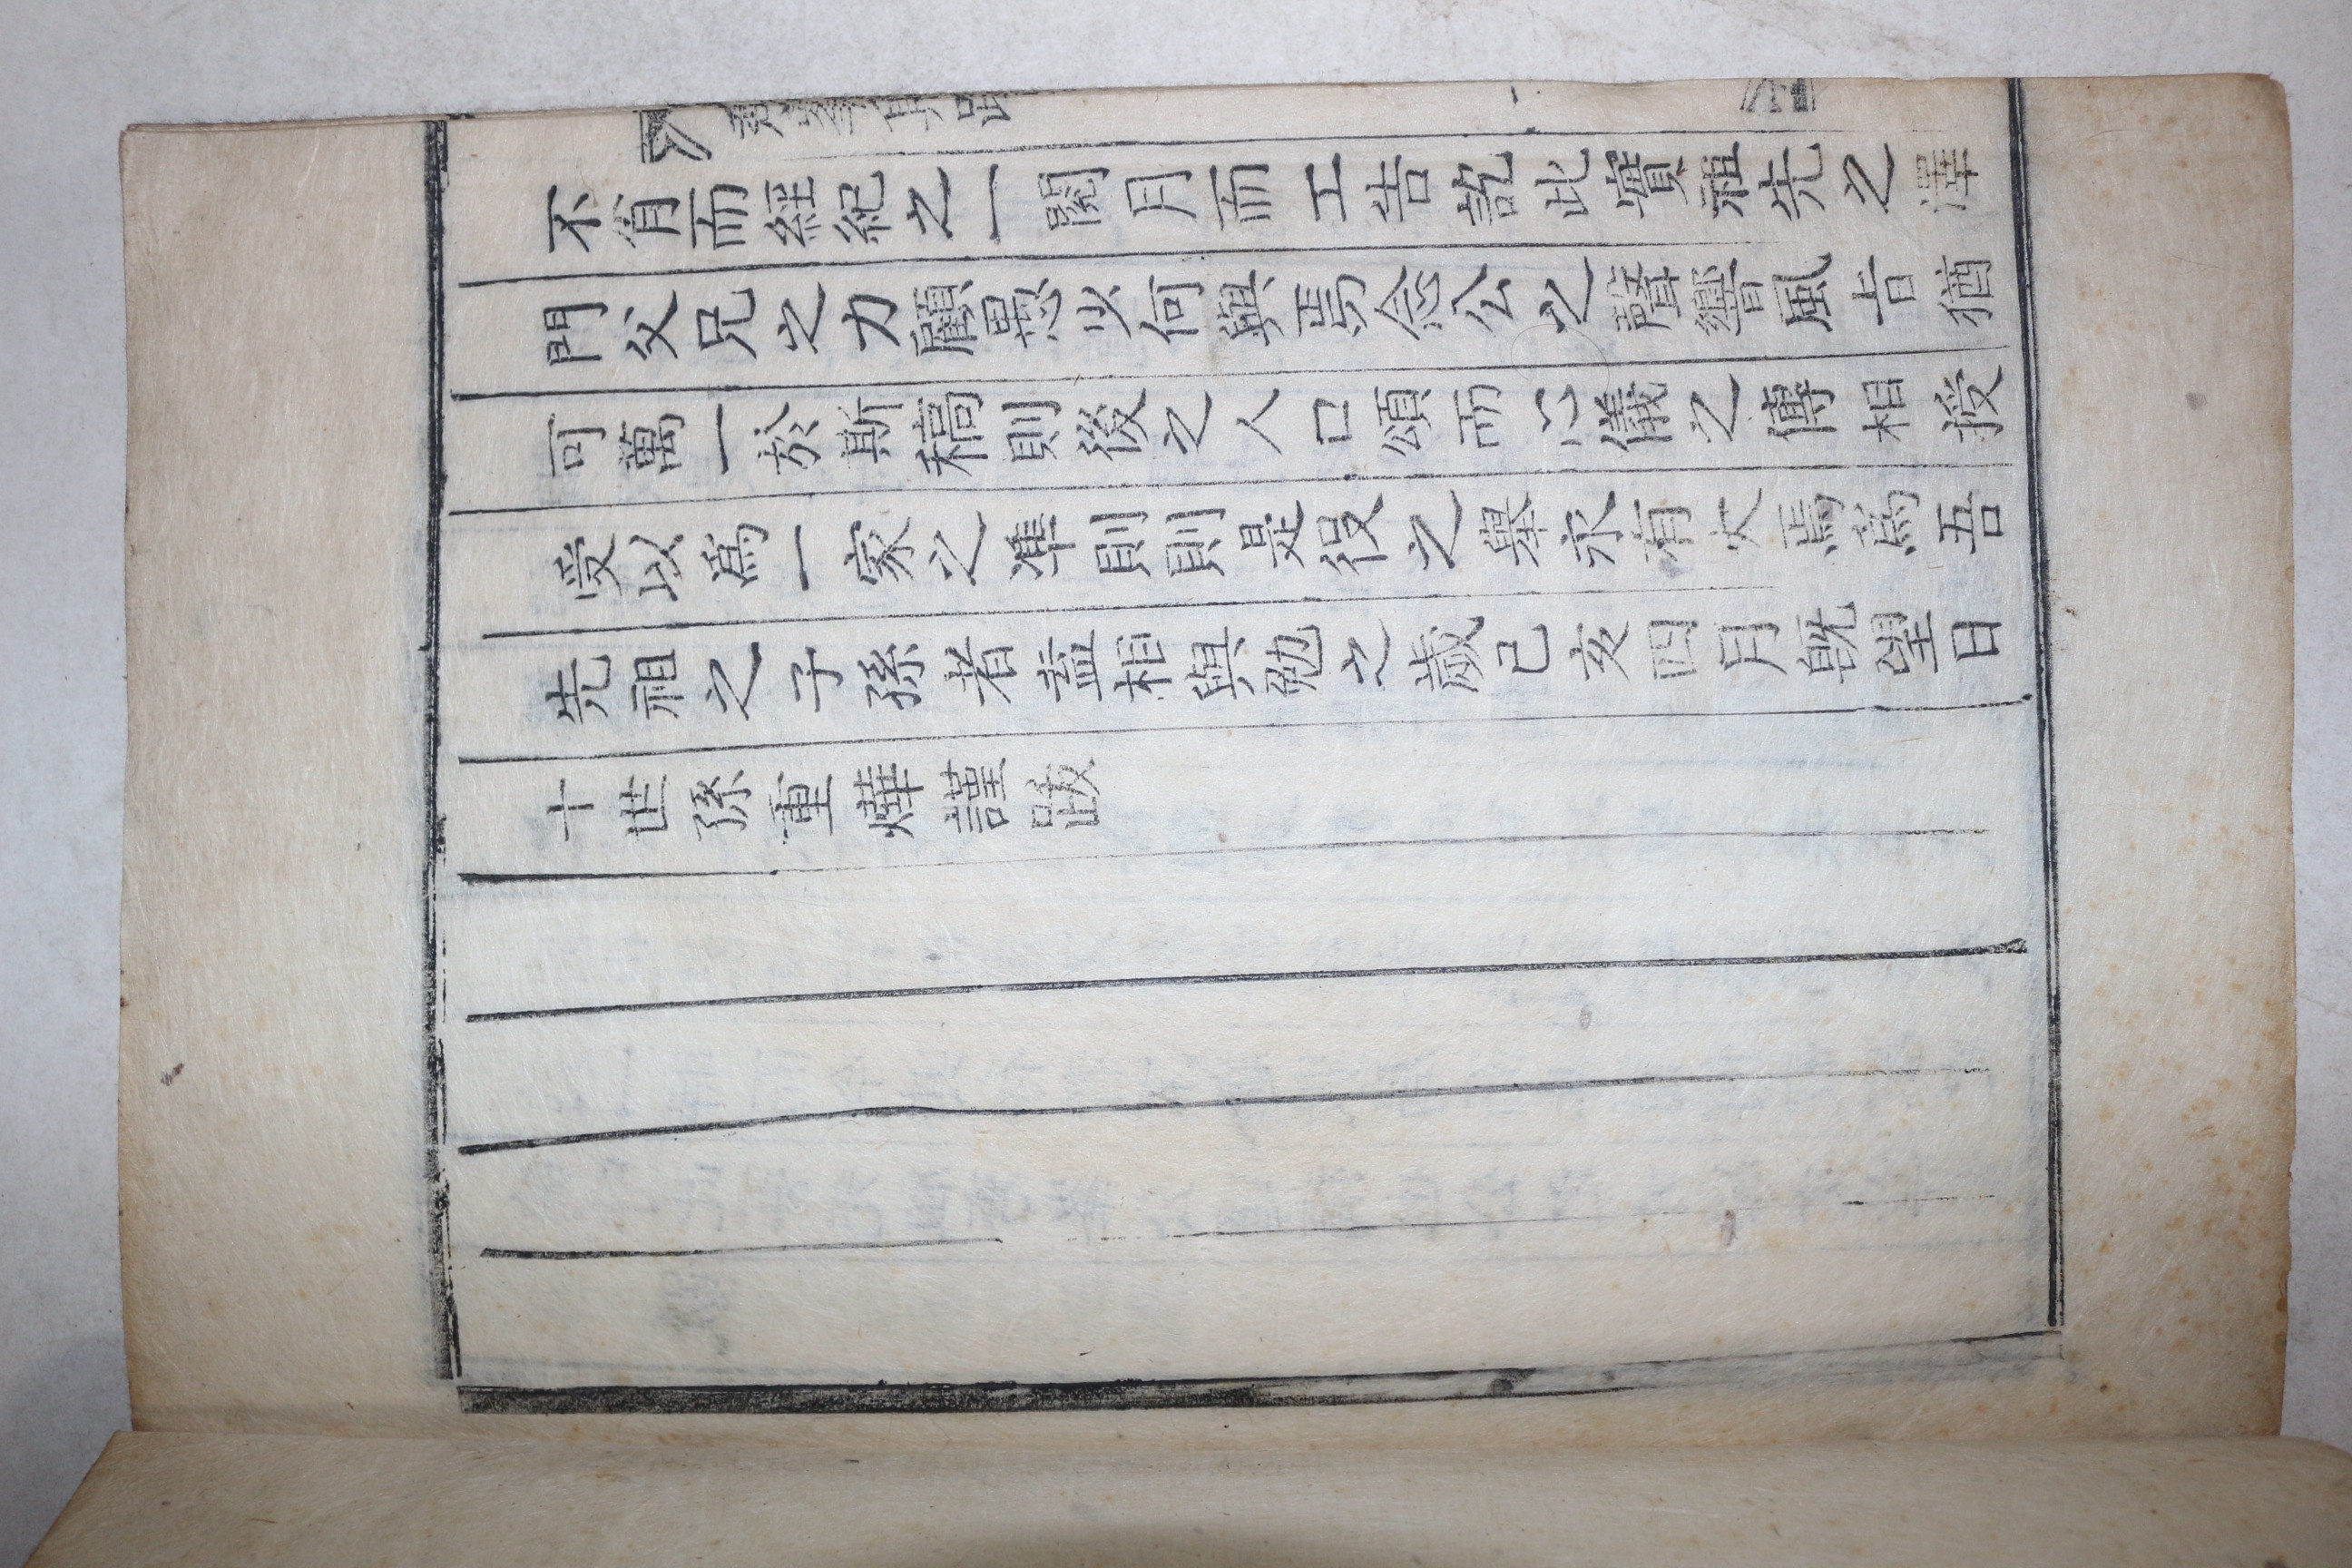 不肖而經紀之一閱月而工告訖此實祖先之澤
門父兄之力顧愚少何與焉念公之聲響風旨猶
可萬一於斯稿則後之人口頌而心儀之傳相授
受以爲一家之準則則是役之擧亦有大焉爲吾
先祖之子孫者盍相與勉之歲己亥四月旣望日
十世孫重燁謹跋